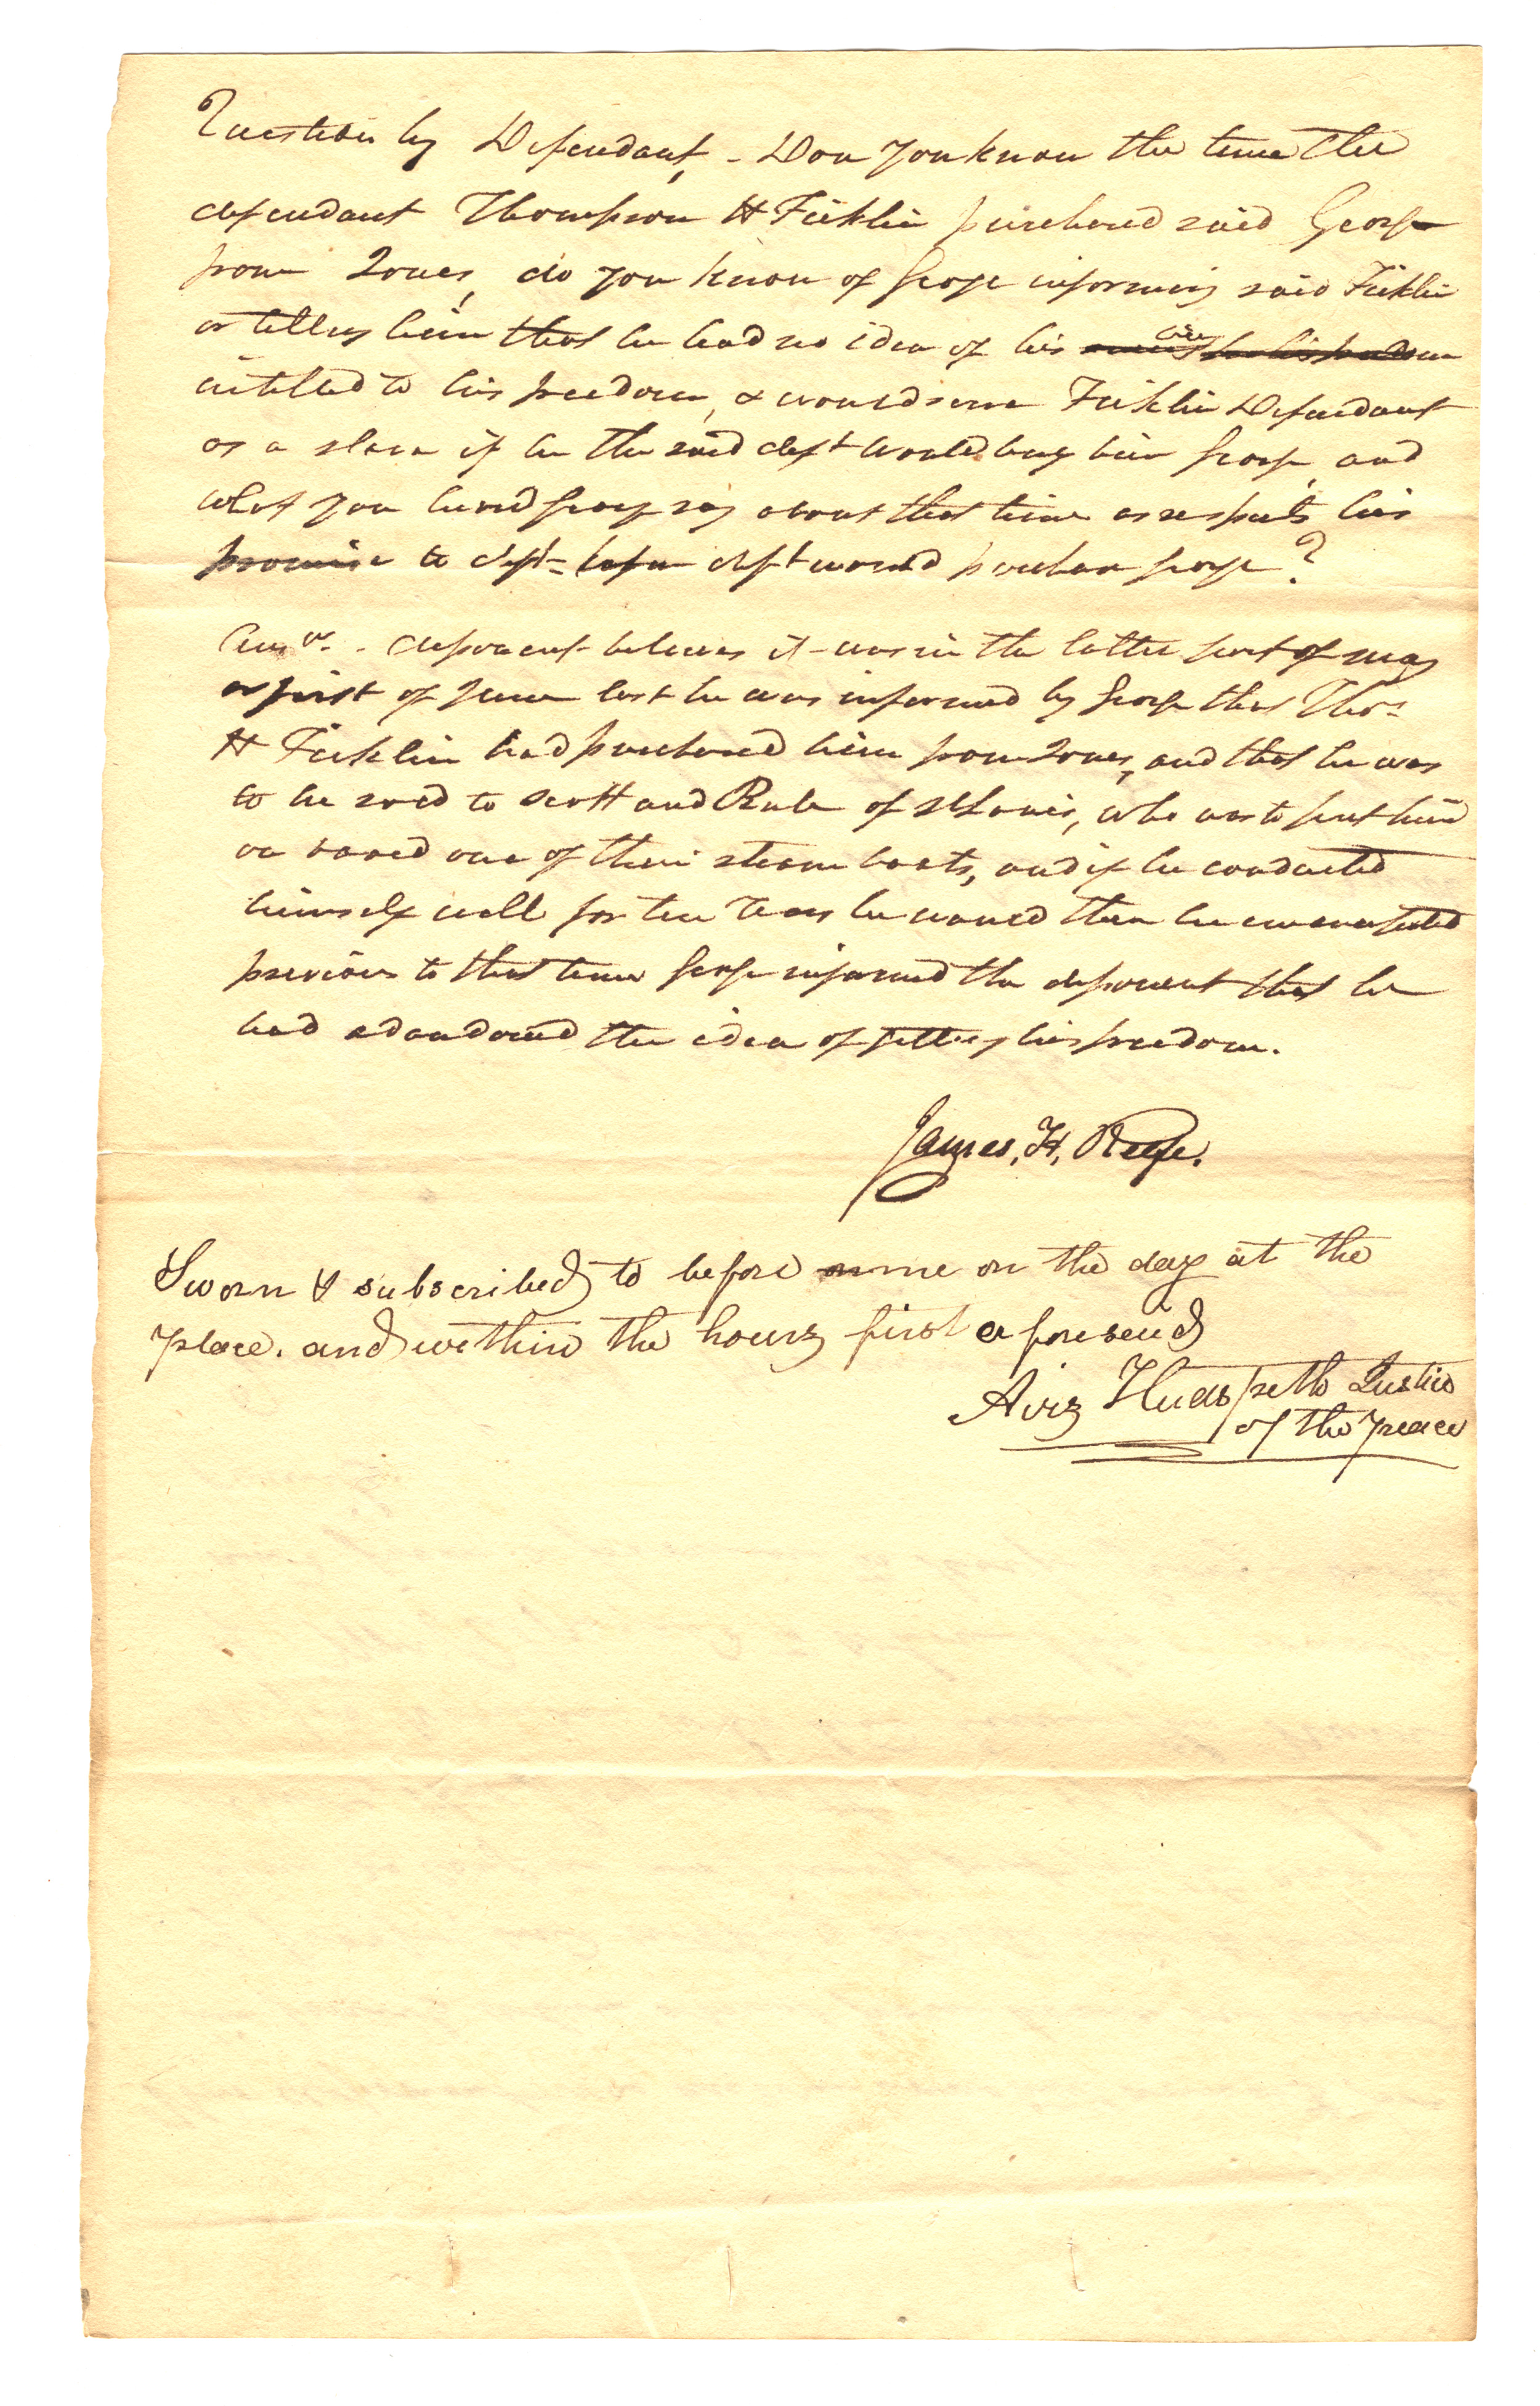 Question by Defendant, - Dou you know the time the
defendant Thompson H Ficklin purchased said George
from Jones, do you know of George informing said Ficklin
or telling him that he had no idea of his
intitled to his freedom, & would serve Ficklin Defendant
as a slave if he the said deft would buy him George and
what you heard George say about that time as respects his
promise to deft - before deft would purchase George?
Answr. - deponent believes it was in the latter part of may
or first of June last he was informed by George that Thos.
H Ficklin had purchased him from Jones, and that he was
to be sold to Scott and Rule of St Louis, who was to put him
on board one of their steam boats, and if he conducted
himself well for ten Years he would then be emancipated
previous to that time George informed the deponent that he
had abandoned the idea of getting his freedom.
James, H,
Sworn & subscribed to before me on the day at the
place. and within the hours first aforesaid
Airz Hudspeth Justice
of the peace